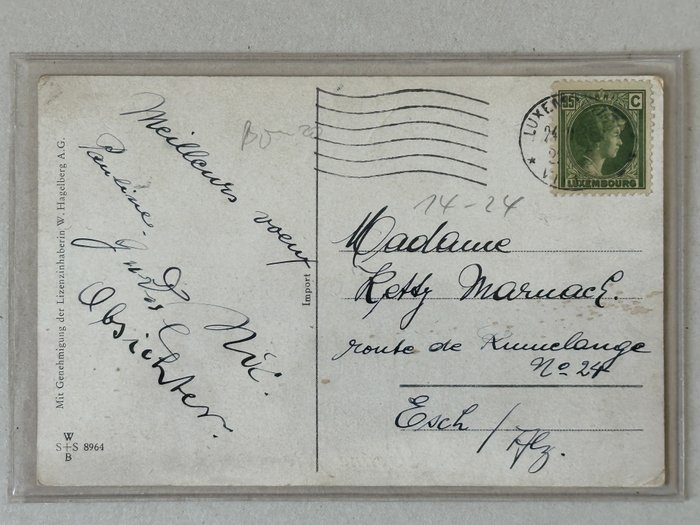 Mit Genehmigung der Lizenzinhaberin W. Hagelberg A.G.
W
S+S 8964
B
Meilleurs voeux
Pauline
Nic.
Obsichter.
Import
LUXEM
35 C
LUXEMBOURG
14-24
Madame
Ketty Marnach.
route de Rumelange
No 24
Esch/Alz.